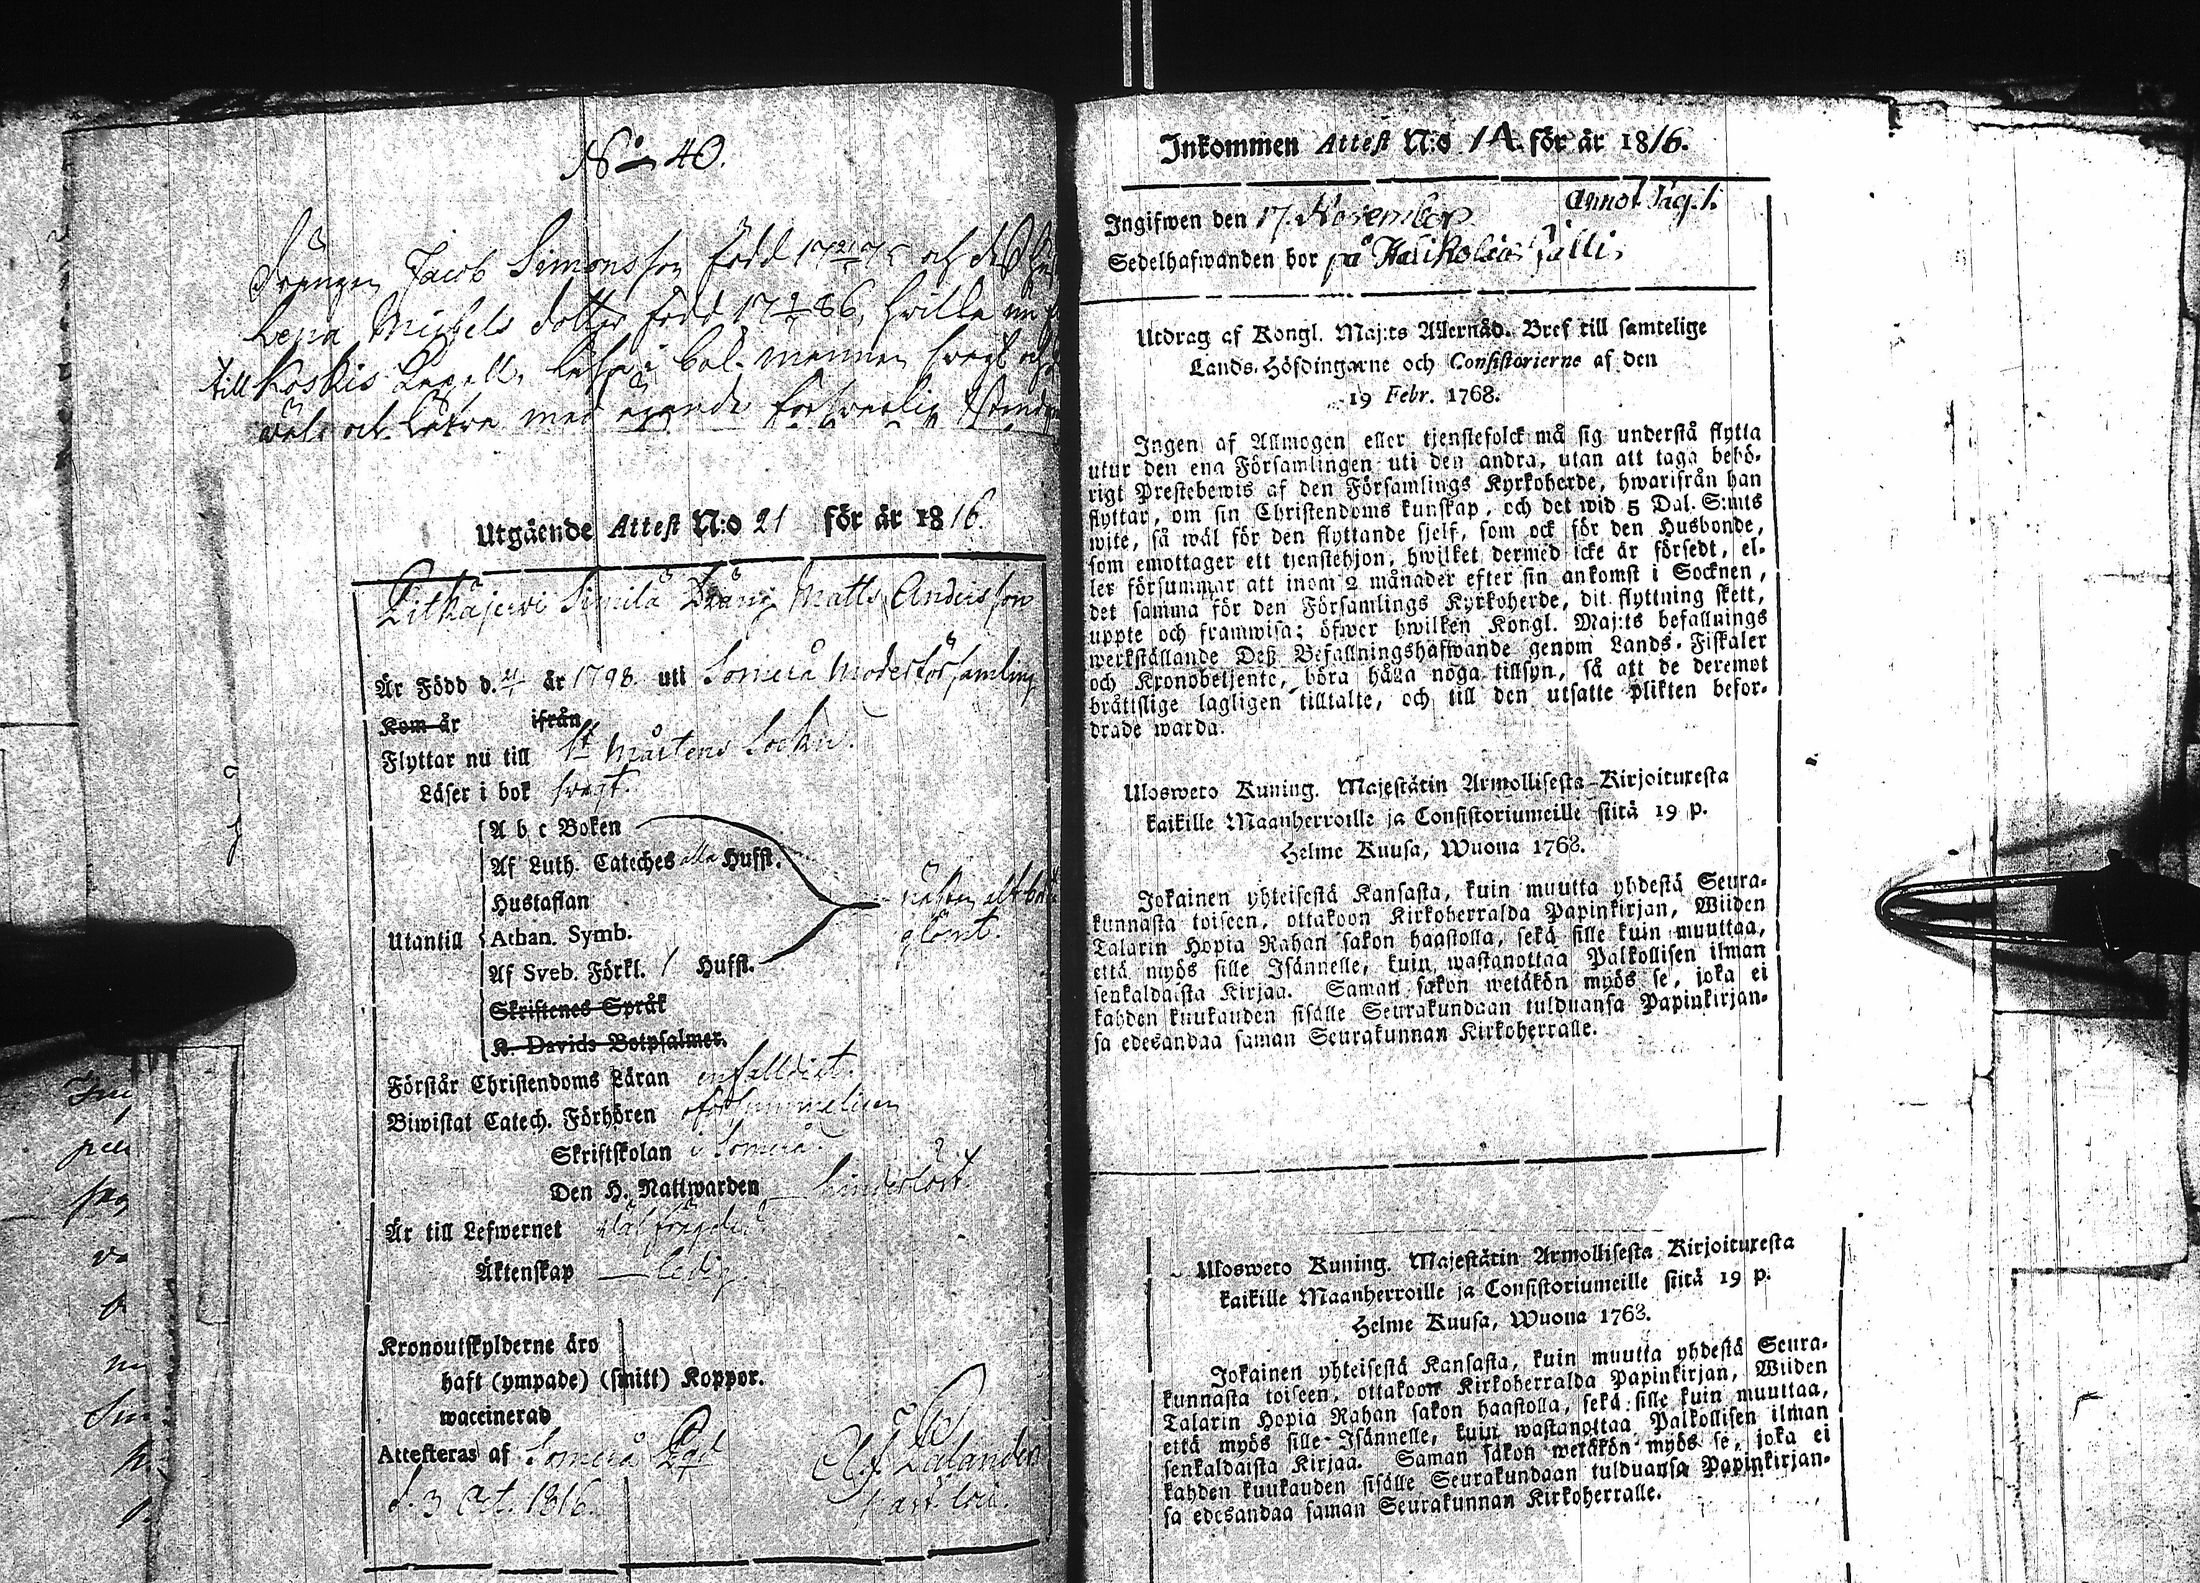 No 40.
Drängen Jacob Simonsson född 17 75 och dess
Lena Michels dotter född 17 86, hvilka nu
till Koskis Capell, läsa i bok mannen svagt och
väl och låfva med ägande
Utgående Attest N:o 21 för år 1816.
Pitkäjervi Simila Dräng Matts Andersson
Är Född d. år 1798. uti Somero Moderförsamling
Kom år ifrån
Flyttar nu till St Mårtens Sockn.
Läser i bok svagt.
A b c Boken
Af Luth. Cateches alla Hufst.
Hustaflan nästan allt
Utantill Athan. Symb. glömt.
Af Sveb. Förkl. 1 Hufst.
Skriftenes Språk
K. Davids Botpsalmer.
Förstår Christendoms Läran enfalldigt.
Biwistat Catech. Förhören oförsummeligen
Skriftskolan i Somero.
Den H. Nattwarden hinderlöst.
Är till Lefwernet välfrägdad
Äktenskap ledig.
Kronoutskylderne äro
haft (ympade) (smitt) Koppor.
waccinerad
Attesteras af Somero
d. 3 Oct. 1816.
Inkommen Attest N:o 1A. för år 1816.
Annot. Pag. 1.
Ingifwen den 17. November
Sedelhafwanden bor på
Utdrag af Kongl. Maj:ts Allernåd. Bref till samtelige
Lands-Höfdingarne och Consistorierne af den
19 Febr. 1768.
Ingen af Allmogen eller tjenstefolck må sig understå flytta
utur den ena Församlingen uti den andra, utan att taga behö-
rigt Prestebewis af den Församlings Kyrkoherde, hwarifrån han
flyttar, om sin Christendoms kunskap, och det wid 5 Dal. S:mts
wite, så wäl för den flyttande sjelf, som ock för den Husbonde,
som emottager ett tjenstehjon, hwilket dermed icke är försedt, el-
ler försummar att inom 2 månader efter sin ankomst i Socknen,
det samma för den Församlings Kyrkoherde, dit flyttning skett,
uppte och framwisa; öfwer hwilken Kongl. Maj:ts befallnings
werkställande Deß Befallningshafwande genom Lands-Fiskaler
och Kronobetjente, böra hålla noga tillsyn, så att de deremot
bråtslige lagligen tilltalte, och till den utsatte plikten befor-
drade warda.
Ulosweto Kuning. Majestätin Armollisesta Kirjoituxesta
kaikille Maanherroille ja Consistoriumeille siitä 19 p.
Helme Kuusa, Wuona 1768.
Jokainen yhteisestä Kansasta, kuin muutta yhdestä Seura-
kunnasta toiseen, ottakoon Kirkoherralda Papinkirjan, Wiiden
Talarin Hopia Rahan sakon haastolla, sekä sille kuin muuttaa,
että myös sille Isännelle, kuin wastanottaa Palkollisen ilman
senkaldaista Kirjaa. Saman sakon wetäkön myös se, joka ei
kahden kuukauden sisälle Seurakundaan tulduansa Papinkirjan-
sa edesandaa saman Seurakunnan Kirkoherralle.
Ulosweto Kuning. Majestätin Armollisesta Kirjoituxesta
kaikille Maanherroille ja Consistoriumeille siitä 19 p.
Helme Kuusa, Wuona 1768.
Jokainen yhteisestä Kansasta, kuin muutta yhdestä Seura-
kunnasta toiseen, ottakoon Kirkoherralda Papinkirjan, Wiiden
Talarin Hopia Rahan sakon haastolla, sekä sille kuin muuttaa,
että myös sille Isännelle, kuin wastanottaa Palkollisen ilman
senkaldaista Kirjaa. Saman sakon wetäkön myös se, joka ei
kahden kuukauden sisälle Seurakundaan tulduansa Papinkirjan-
sa edesandaa saman Seurakunnan Kirkoherralle.